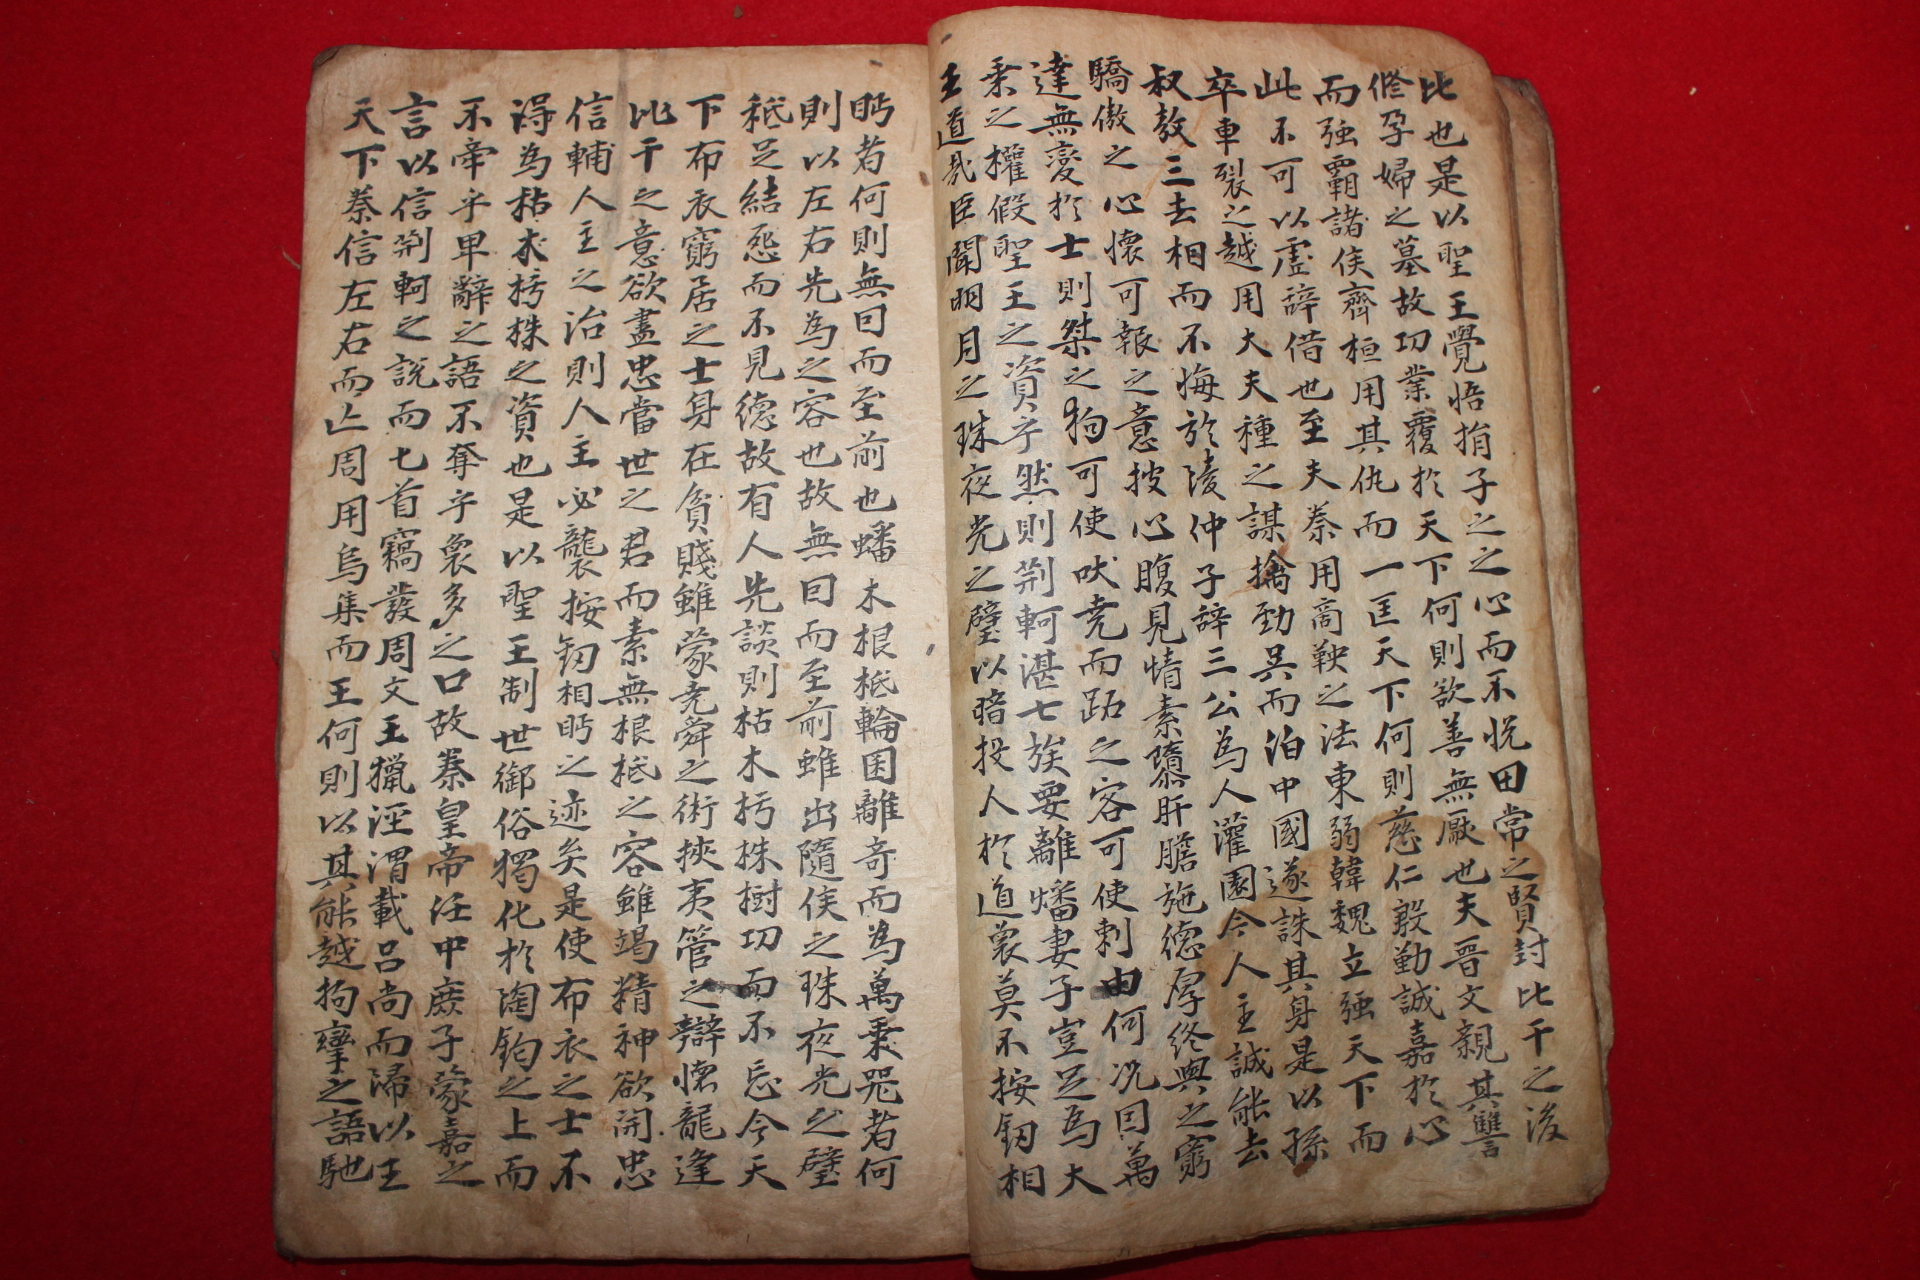 比也是以聖王覺悟捐子之之心而不悅田常之賢封比干之後
修孕婦之墓故功業覆於天下何則欲善無厭也夫晉文親其讐
而強霸諸侯齊桓用其仇而一匡天下何則慈仁殷勤誠嘉於心
此不可以虛辞借也至夫秦用商鞅之法東弱韓魏立强天下而
卒車裂之越用大夫種之謀擒勁吳而泊中國遂誅其身是以孫
叔敖三去相而不悔於陵仲子辞三公為人灌園今人主誠能去
驕傲之心懷可報之意披心腹見情素隳肝膽施德厚終與之窮
達無変於士則桀之狗可使吠堯而跖之客可使刺由何况因萬
乘之權假聖王之資乎然則荊軻湛七族要離燔妻子豈足為大
王道哉臣聞明月之珠夜光之璧以暗投人於道衆莫不按釰相
眄者何則無因而至前也蟠木根柢輪囷離奇而為萬乘器者何
則以左右先為之容也故無因而至前雖出隨侯之珠夜光之璧
秪足結怨而不見德故有人先談則枯木朽株樹功而不忘今天
下布衣窮居之士身在貧賤雖蒙堯舜之術挾夷管之辯懷龍逢
比干之意欲盡忠當世之君而素無根柢之容雖竭精神欲開忠
信輔人主之治則人主必襲按釰相眄之迹矣是使布衣之士不
得為枯木朽株之資也是以聖王制世御俗獨化於陶鈞之上而
不牽乎卑辭之語不奪乎衆多之口故秦皇帝任中庶子蒙嘉之
言以信荊軻之説而七首竊發周文王獵涇渭載呂尚而歸以王
天下秦信左右而亡周用烏集而王何則以其能越拘攣之語馳